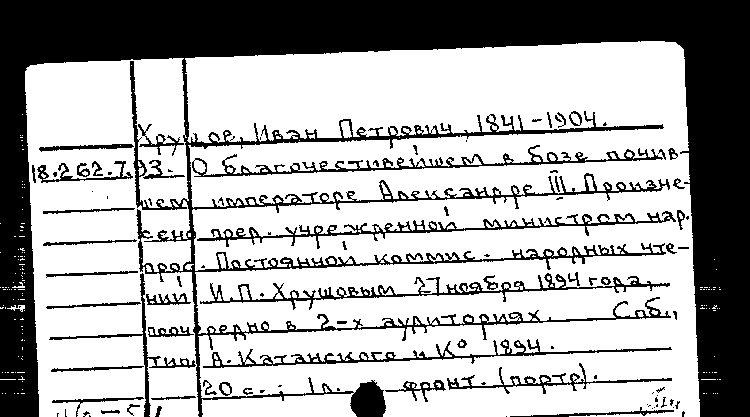 Хрущов, Иван Петрович, 1841-1904.
18.262.7.93. О благочестивейшем в бозе почив-
шем императоре Александре III. Произне-
сено пред. учрежденной министром нар.
прос. Постоянной коммис. народных чте-
ний И.П. Хрущовым 27 ноября 1894 года,
поочередно в 2-х аудиториях. Спб.,
тип. А. Катанского и К°, 1894.
20 с.; 1 л. фронт. (портр).